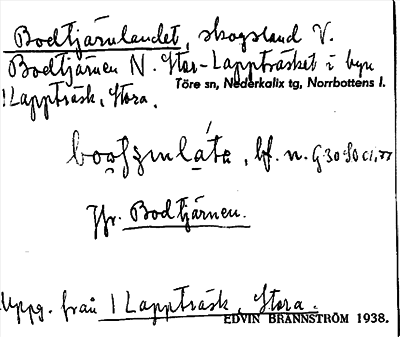 Bodtjärnlandet, skogsland V.
Bodtjärnen N. Stor-Lappträsket i byn
Töre sn, Nederkalix tg, Norrbottens l.
1 Lappträsk, Stora.
bf. n.
Jfr. Bodtjärnen.
Uppg. från 1 Lappträsk, Stora.
EDVIN BRÄNNSTRÖM 1938.